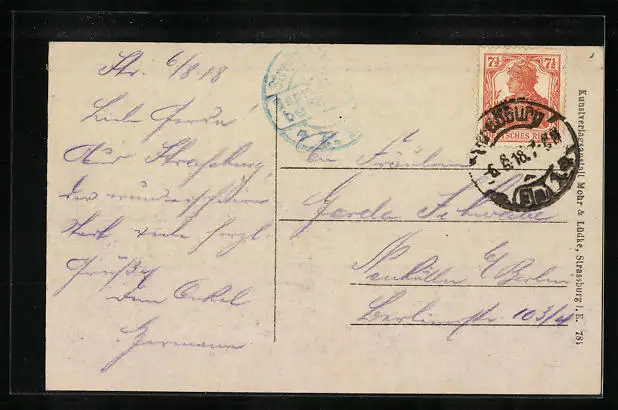 Str. 6/8.18
Liebe Gerda
Aus Strassburg,
der wunderschönen
Stadt, viele herzl.
Grüße
Dein Onkel
Hermann
Fräulein
Gerda Schwabe
Neukölln b/Berlin
Berlinerstr. 103/4
7½ 7½
DEUTSCHES REICH
6.8.18.7-8N
(Els)
Kunstverlagsanstalt Mohr & Lüdke, Strassburg i. E. 784